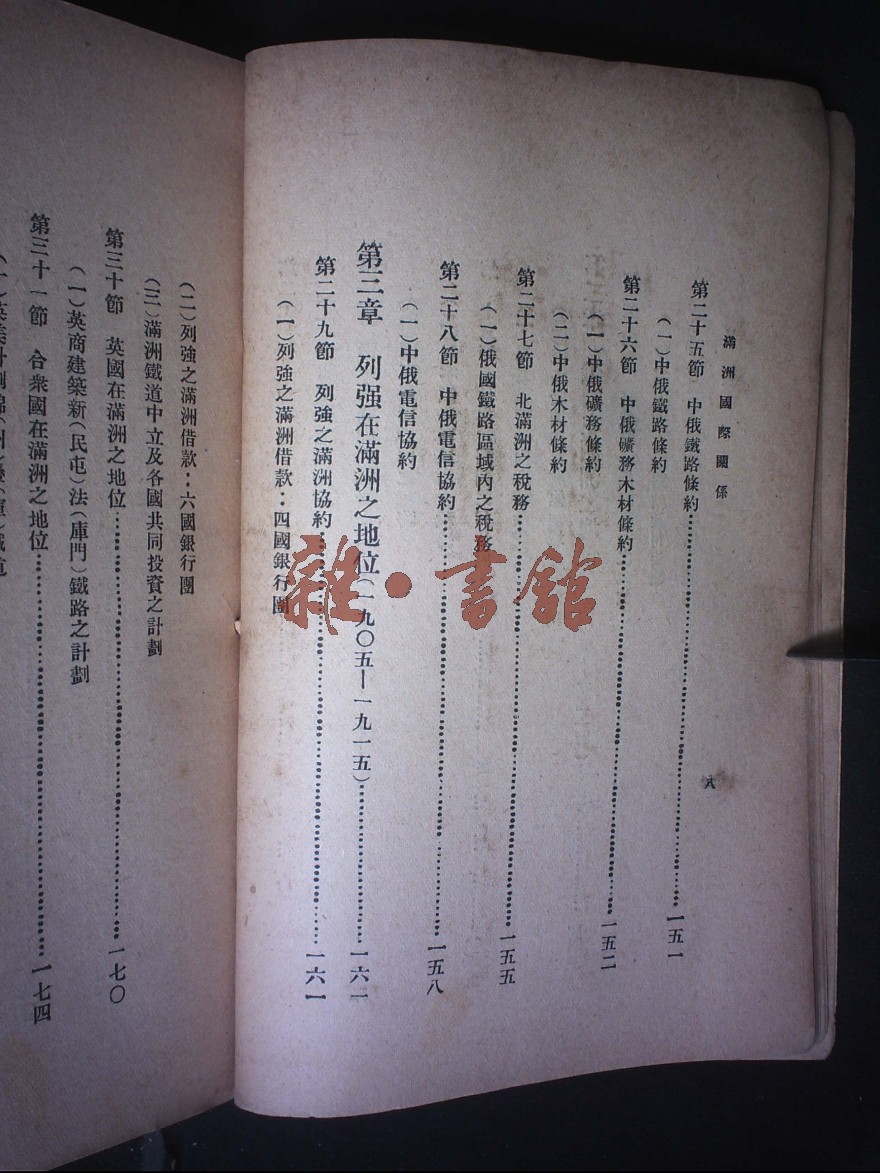 滿洲國際關係
八
第二十五節　中俄鐵路條約……一五一
（一）中俄鐵路條約
第二十六節　中俄礦務木材條約……一五二
（一）中俄礦務條約
（二）中俄木材條約
第二十七節　北滿洲之稅務……一五五
（一）俄國鐵路區域內之稅務
第二十八節　中俄電信協約……一五八
（一）中俄電信協約
第三章　列强在滿洲之地位（一九〇五—一九一五）……一六一
第二十九節　列強之滿洲協約……一六一
（一）列強之滿洲借款：四國銀行團
（二）列強之滿洲借款：六國銀行團
（三）滿洲鐵道中立及各國共同投資之計劃
第三十節　英國在滿洲之地位……一七〇
（一）英商建築新（民屯）法（庫門）鐵路之計劃
第三十一節　合衆國在滿洲之地位……一七四
雜·書館